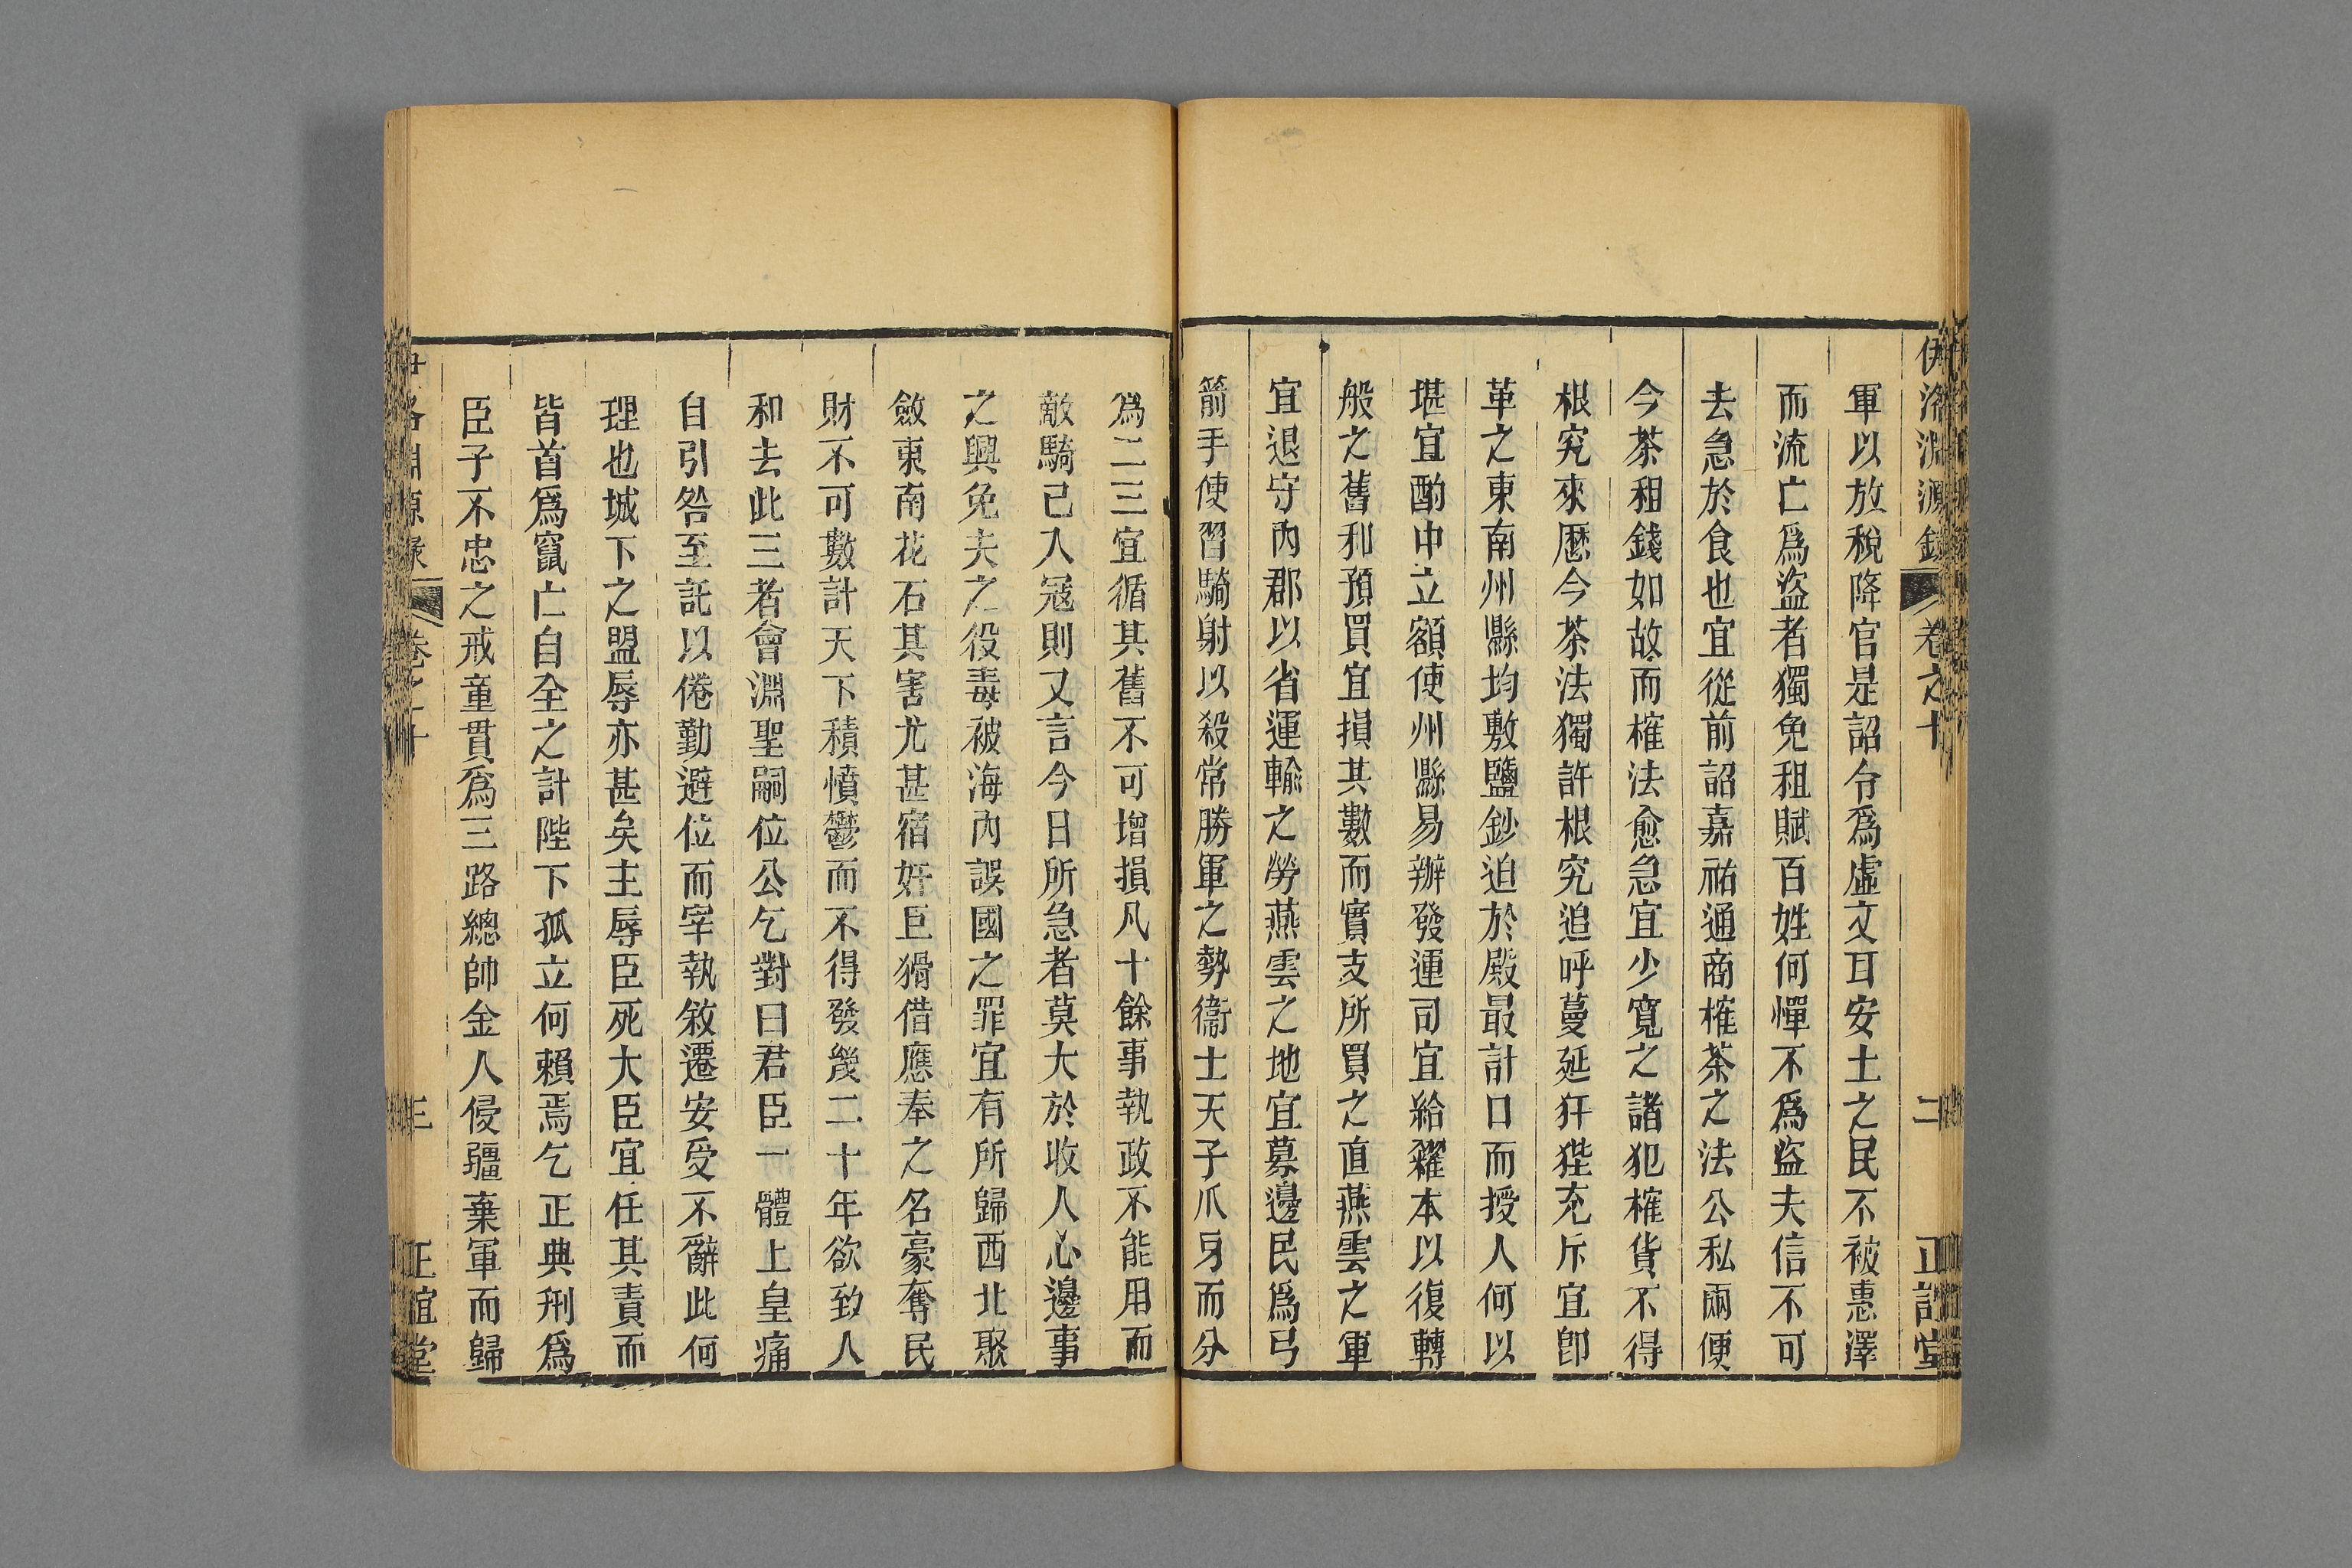 伊洛淵源錄 卷之十 二 正誼堂
軍以放稅降官是詔令爲虛文耳安土之民不被惠澤
而流亡爲盜者獨免租賦百姓何憚不爲盜夫信不可
去急於食也宜從前詔嘉祐通商榷茶之法公私兩便
今茶租錢如故而榷法愈急宜少寬之諸犯榷貨不得
根究來歷今茶法獨許根究追呼蔓延犴狴充斥宜卽
革之東南州縣均敷鹽鈔迫於殿最計口而授人何以
堪宜酌中立額使州縣易辦發運司宜給糴本以復轉
般之舊和預買宜損其數而實支所買之直燕雲之軍
宜退守內郡以省運輸之勞燕雲之地宜募邊民爲弓
箭手使習騎射以殺常勝軍之勢衞士天子爪牙而分
爲二三宜循其舊不可增損凡十餘事執政不能用而
敵騎已入寇則又言今日所急者莫大於收人心邊事
之興免夫之役毒被海內誤國之罪宜有所歸西北聚
斂東南花石其害尤甚宿奸巨猾借應奉之名豪奪民
財不可數計天下積憤鬱而不得發幾二十年欲致人
和去此三者會淵聖嗣位公乞對曰君臣一體上皇痛
自引咎至託以倦勤避位而宰執敘遷安受不辭此何
理也城下之盟辱亦甚矣主辱臣死大臣宜任其責而
皆首爲竄亡自全之計陛下孤立何賴焉乞正典刑爲
臣子不忠之戒童貫爲三路總帥金人侵疆棄軍而歸
伊洛淵源錄 卷之十 三 正誼堂